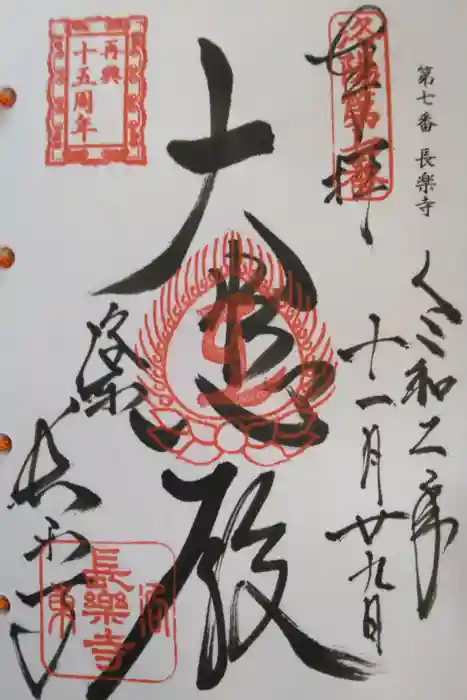 第七番 長楽寺
令和二年
十一月廿九日
奉拝
洛陽第七番
大悲殿
再興
十五周年
洛東
長楽寺
長樂寺